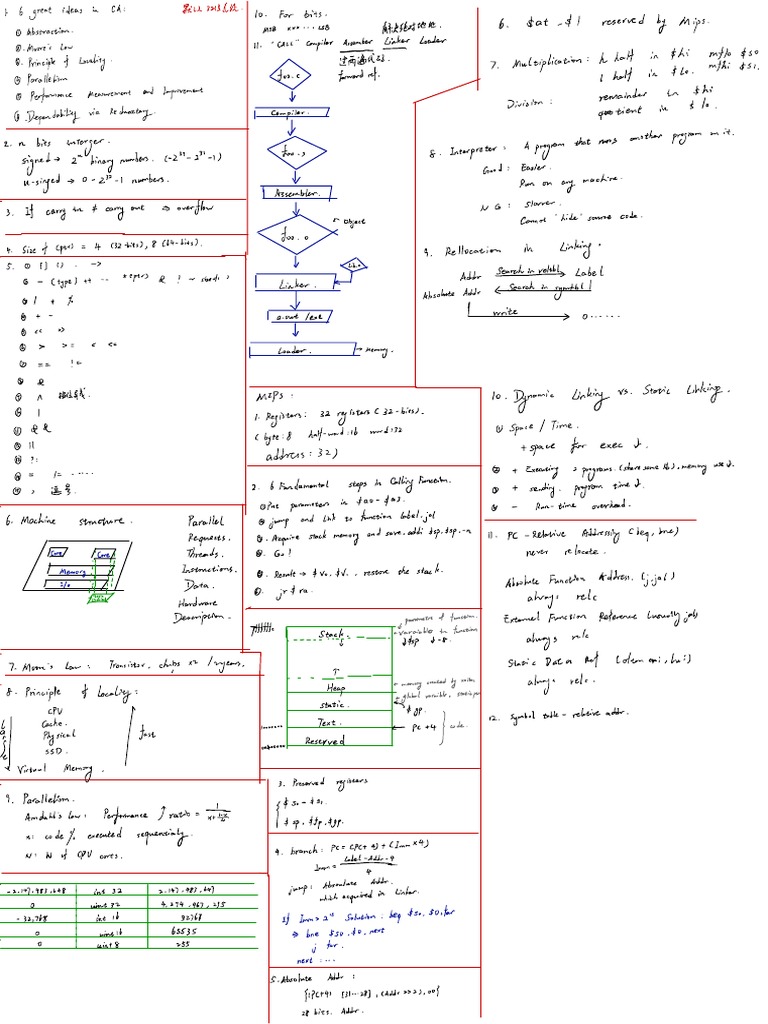 1. 6 great ideas in CA:
① Abstraction.
② Moore's Law
③ Principle of Locality.
④ Parallelism
⑤ Performance Measurement and Improvement
⑥ Dependability via Redundancy.
2. n bits integer.
signed → 2^n binary numbers.
un-signed → 0 - 2^32 -1 numbers.
3. If carry in ≠ carry out ⇒ overflow
4. Size of (ptrs) = 4 (32-bits), 8 (64-bits).
5. ① [] () . ->
② - (type) ++ -- *(ptr) & ! ~ sizeof
③ / * %
④ + -
⑤ << >>
⑥ > >= < <=
⑦ == !=
⑧ &
⑨ ^
⑩ |
⑪ &&
⑫ ||
⑬ ?:
⑭ = /= ......
⑮ , 逗号.
6. Machine structure.
Core Core
Memory
I/O
Parallel
Requests.
Threads.
Instructions.
Data.
Hardware
Description.
7. Moore's Law: Transistor. chips x2 / 2years.
8. Principle of Locality:
CPU
Cache.
Physical
SSD.
Virtual Memory.
Large
fast
9. Parallelism.
Amdahl's Law: Performance ↑ ratio =
x: code % executed sequentially.
N: # of CPU cores.
-2,147,483,648 int 32 2,147,483,647
0 uint 32 4,294,967,295
-32,768 int 16 32768
0 uint 16 65535
0 uint 8 255
10. For bits.
MSB xxx.... LSB
11. "CALL" Compiler Assembler Linker Loader
forward ref.
foo.c
Compiler.
foo.s
Assembler.
foo.o
Object
Lib.o
Linker.
a.out /exe
Loader.
→ Memory.
MIPS:
1. Registers: 32 registers (32-bits).
(byte: 8 half-word: 16 word: 32
address: 32)
2. 6 Fundamental steps in Calling Function.
① Put parameters in $a0 - $a3.
② jump and link to function label. jal
③ Acquire stack memory and save. addi $sp, $sp, -n
④ Go!
⑤ Result → $v0, $v1.. restore the stack.
⑥ jr $ra.
Stack.
Heap
static.
Text.
Reserved
parameters of function.
variables in function
$sp ↓ -8.
$gp.
PC+4
code.
3. Preserved registers
$s0 - $s7.
$sp, $fp, $gp.
4. branch: PC = (PC+4) + (Imm x 4)
Imm = Label - Addr - 4 / 4
jump: Absolute Addr.
which acquired in Linker.
If Imm > Solution: beq $s0, $0, far
⇒ bne $s0, $0, next
j far.
next: ....
5. Absolute Addr:
{(PC+4) [31...28], (Addr >> 2), 00}
28 bits. Addr.
6. $at - $1 reserved by Mips.
7. Multiplication: h half in $hi mflo $s0
l half in $lo. mfhi $s1.
Division: remainder in $hi
quotient in $lo.
8. Interpreter: A program that runs another program in it.
Good: Easier.
Run on any machine.
NG: Slower.
Cannot "hide" source code.
9. Rellocation in Linking.
Addr Search in reltbl Label
Absolute Addr Search in symtbl
write 0......
10. Dynamic Linking vs. Static Linking.
① Space / Time.
+ space for exec ↓.
② + Executing 2 programs. (share some lib). memory use ↓.
③ + sending. program time ↓.
④ - Run-time overhead.
11. PC-Relative Addressing (beq, bne)
never relocate.
Absolute Function Address. (j, jal)
always relc
External Function Reference (usually jal)
always relc
Static Data Ref
always relc.
12. Symbol table - relative addr.